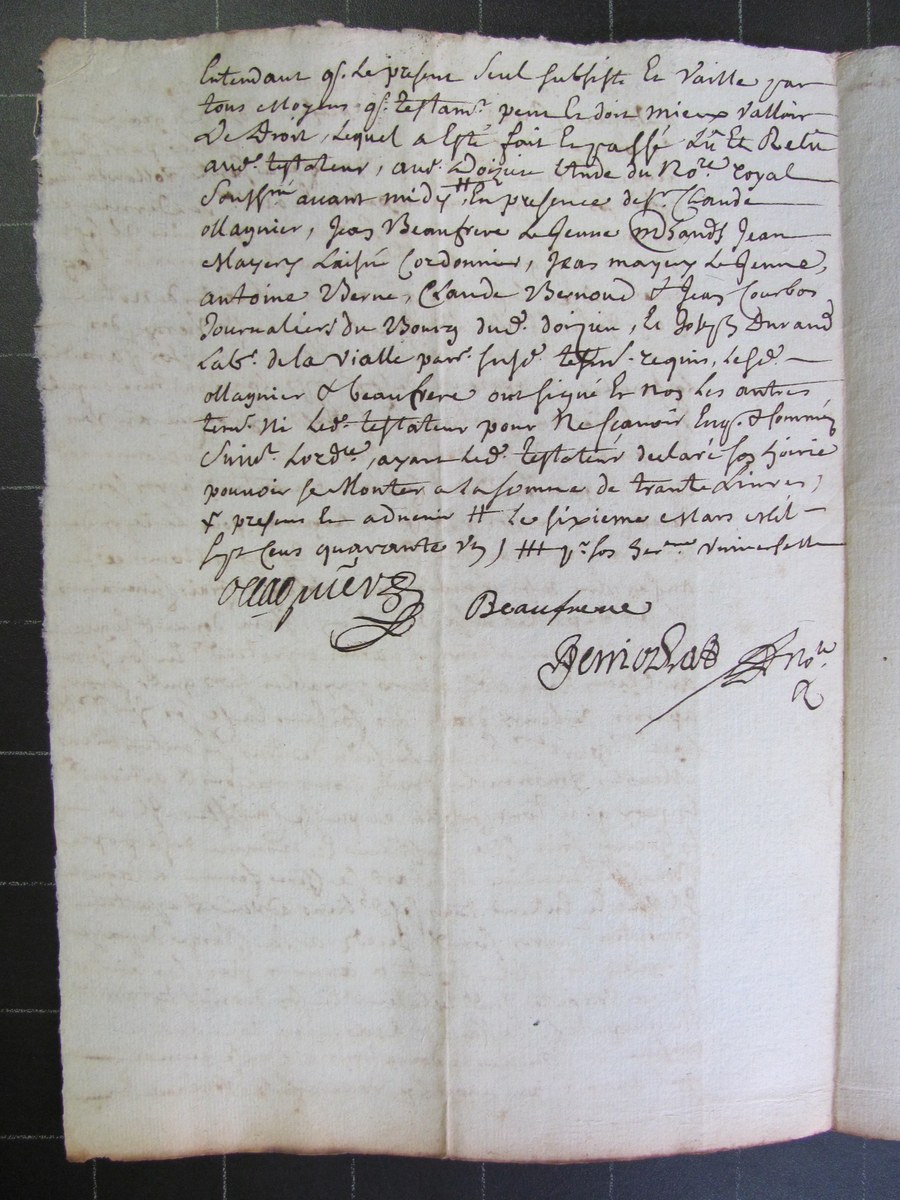 Entendant q. le present seul subsiste et vaille par
tous moyens q. testamt. peut et doit mieux valloir
de Droit, lequel a esté fait et passé Lû et Relû
aud. testateur, aud. Doizieu Etude du Nore. royal
soussné avant midy # En presence de sr. Claude
Magnier, Jean Beaufrere Le Jeune mrchands Jean
Mayery L'aisné Cordonnier, Jean mayery Le Jeune,
antoine Verne, Claude Bernoud & Jean Courbon
Journaliers du Bourg dud. doizieu, et Joseph Durand
Labr. de la Vialle parr. susd. requis, Lesd.
Magnier & beaufrere ont signé et non les autres
tem. ni Led. testateur pour Ne sçavoir Enq. & sommés
suivt. L'ordce, ayant Led. testateur declaré son hoirie
pouvoir se Monter a la somme de trante Livres,
& presens et advenir # Le sixieme Mars Mil
sept Cens quarante un, ### pr. son universelle
Magnier
Beaufrere
nore.